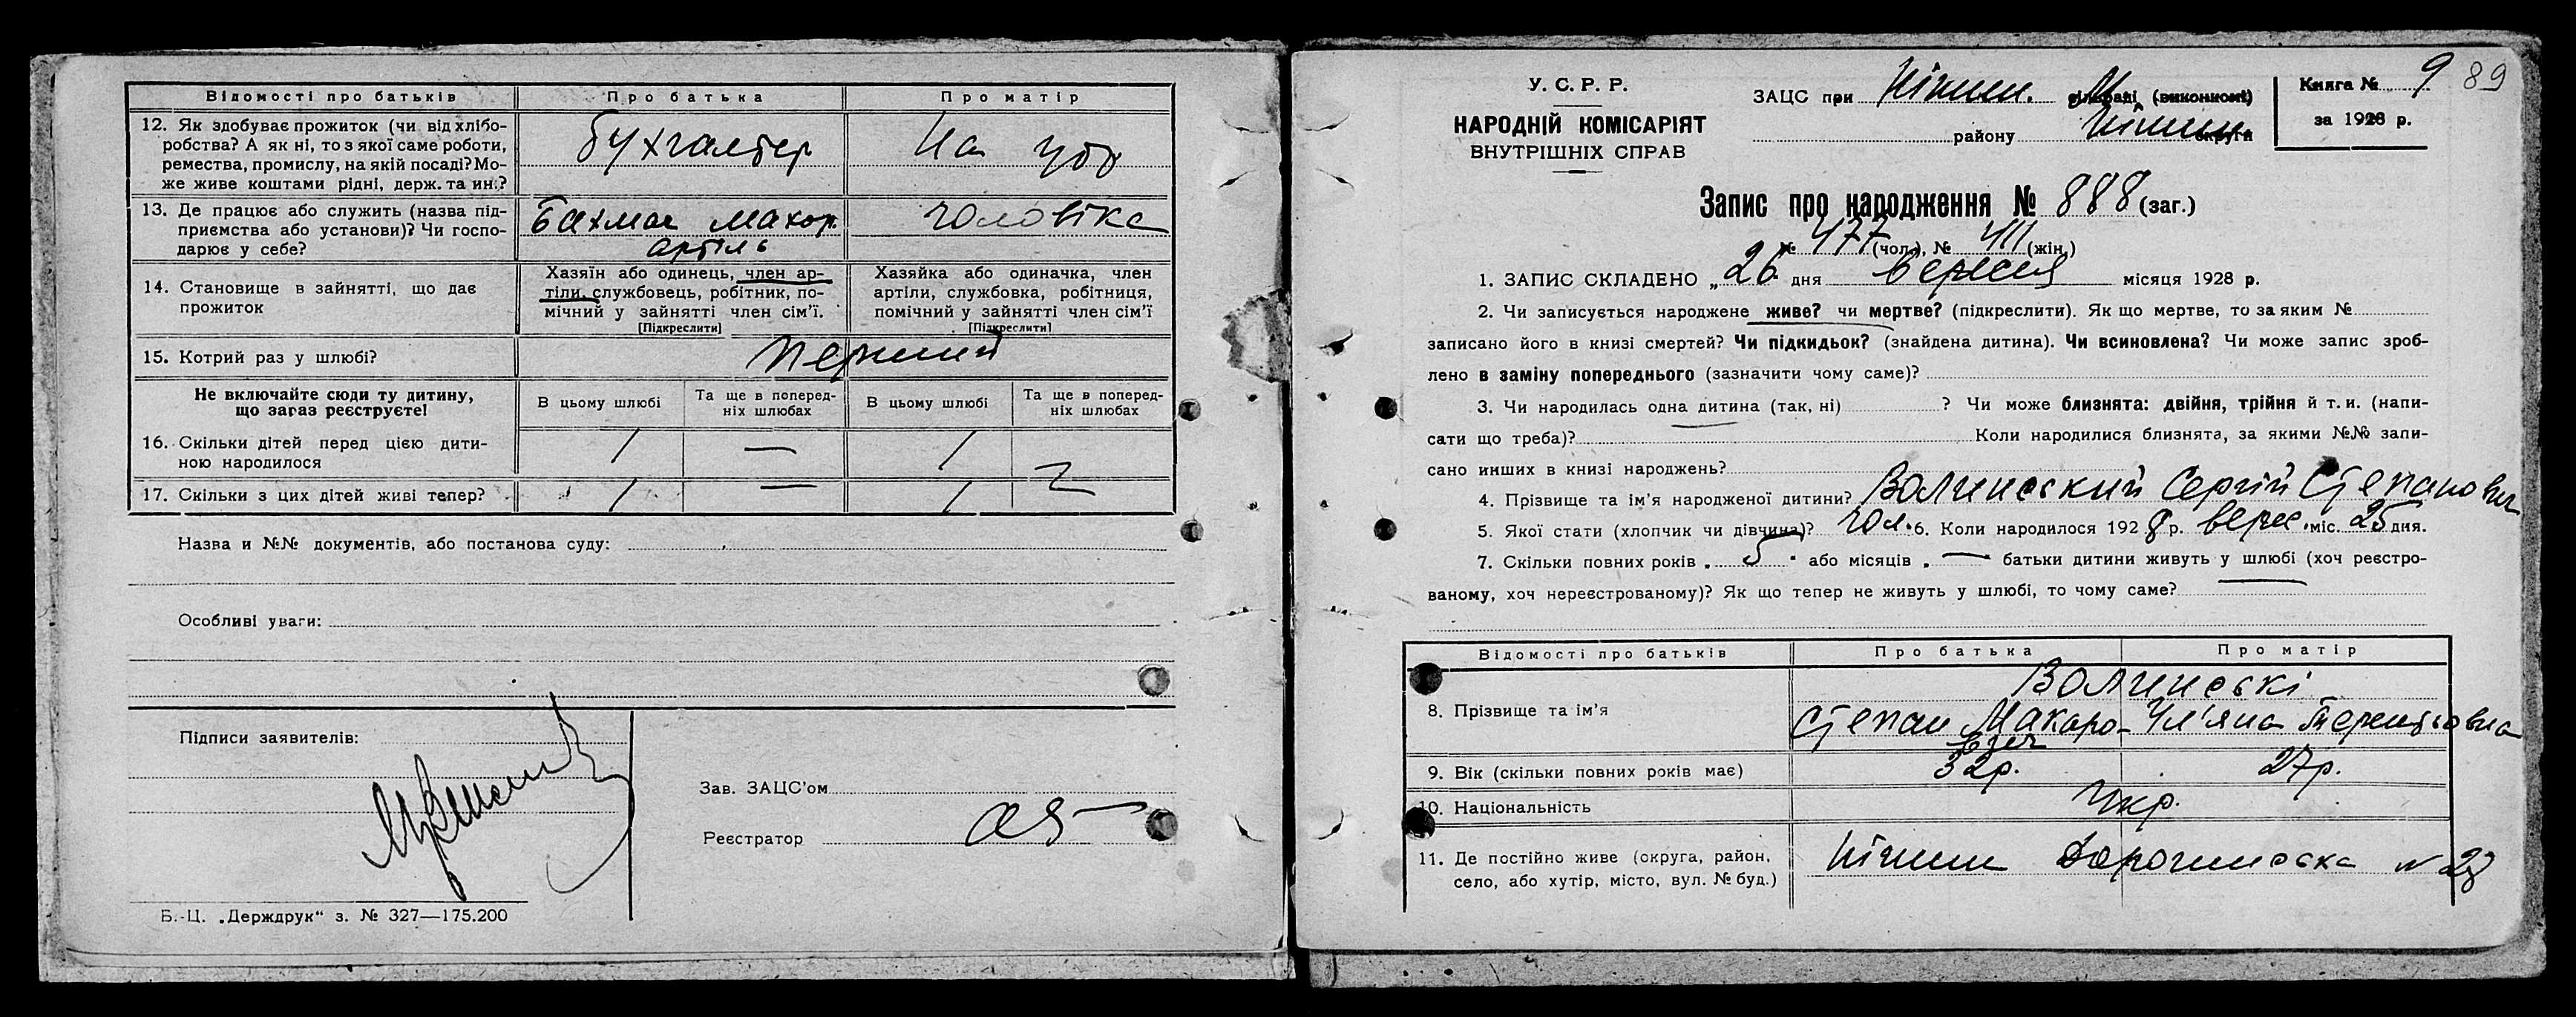 Відомості про батьків Про батька Про матір
12. Як здобуває прожиток (чи від хлібо-
робства? А як ні, то з якої саме роботи,
ремества, промислу, на якій посаді? Мо-
же живе коштами рідні, держ. та ин.?
бухгалтер
На утр
13. Де працює або служить (назва під-
приємства або установи)? Чи госпо-
дарює у себе?
Бахмач махор.
артіль
чоловіка
14. Становище в зайнятті, що дає
прожиток
Хазяїн або одинець, член ар-
тіли, службовець, робітник, по-
мічний у зайнятті член сім'ї.
[Підкреслити]
Хазяйка або одиначка, член
артіли, службовка, робітниця,
помічний у зайнятті член сім'ї
[Підкреслити]
15. Котрий раз у шлюбі? перший
Не включайте сюди ту дитину,
що зараз реєструєте!
В цьому шлюбі
Та ще в поперед-
ніх шлюбах
В цьому шлюбі
Та ще в поперед-
ніх шлюбах
16. Скільки дітей перед цією дити-
ною народилося
1 — 1
17. Скільки з цих дітей живі тепер? 1 — 1
Назва и №№ документів, або постанова суду:
Особливі уваги:
Підписи заявителів:
Зав. ЗАЦС'ом
Реєстратор
Б.-Ц. „Держдрук“ з. № 327—175.200
У. С. Р. Р.
НАРОДНІЙ КОМІСАРІЯТ
ВНУТРІШНІХ СПРАВ
ЗАЦС при Ніжин. М. сільраді (виконкомі)
району Ніжин округи
Книга № 9
за 1928 р.
89
Запис про народження № 888 (заг.)
№ 477 (чол.), № 411 (жін.)
1. ЗАПИС СКЛАДЕНО „26 дня вересня місяця 1928 р.
2. Чи записується народжене живе? чи мертве? (підкреслити). Як що мертве, то за яким №
записано його в книзі смертей? Чи підкидьок? (знайдена дитина). Чи всиновлена? Чи може запис зроб-
лено в заміну попереднього (зазначити чому саме)?
3. Чи народилась одна дитина (так, ні) ? Чи може близнята: двійня, трійня й т. и. (напи-
сати що треба)? Коли народилися близнята, за якими №№ запи-
сано инших в книзі народжень?
4. Прізвище та ім'я народженої дитини? Волинський Сергій Степанович
5. Якої стати (хлопчик чи дівчина)? чол. 6. Коли народилося 1928 р. верес. міс. 25 дня.
7. Скільки повних років „ 5 “ або місяців „ — “ батьки дитини живуть у шлюбі (хоч реєстро-
ваному, хоч нереєстрованому)? Як що тепер не живуть у шлюбі, то чому саме?
Відомості про батьків Про батька Про матір
Волинські
8. Прізвище та ім'я Степан Макаро- Ул'яна Терентьовна
вич
9. Вік (скільки повних років має) 32р. 27р.
10. Національність Укр.
11. Де постійно живе (округа, район,
село, або хутір, місто, вул. № буд.)
Ніжин Дорогинська N 23